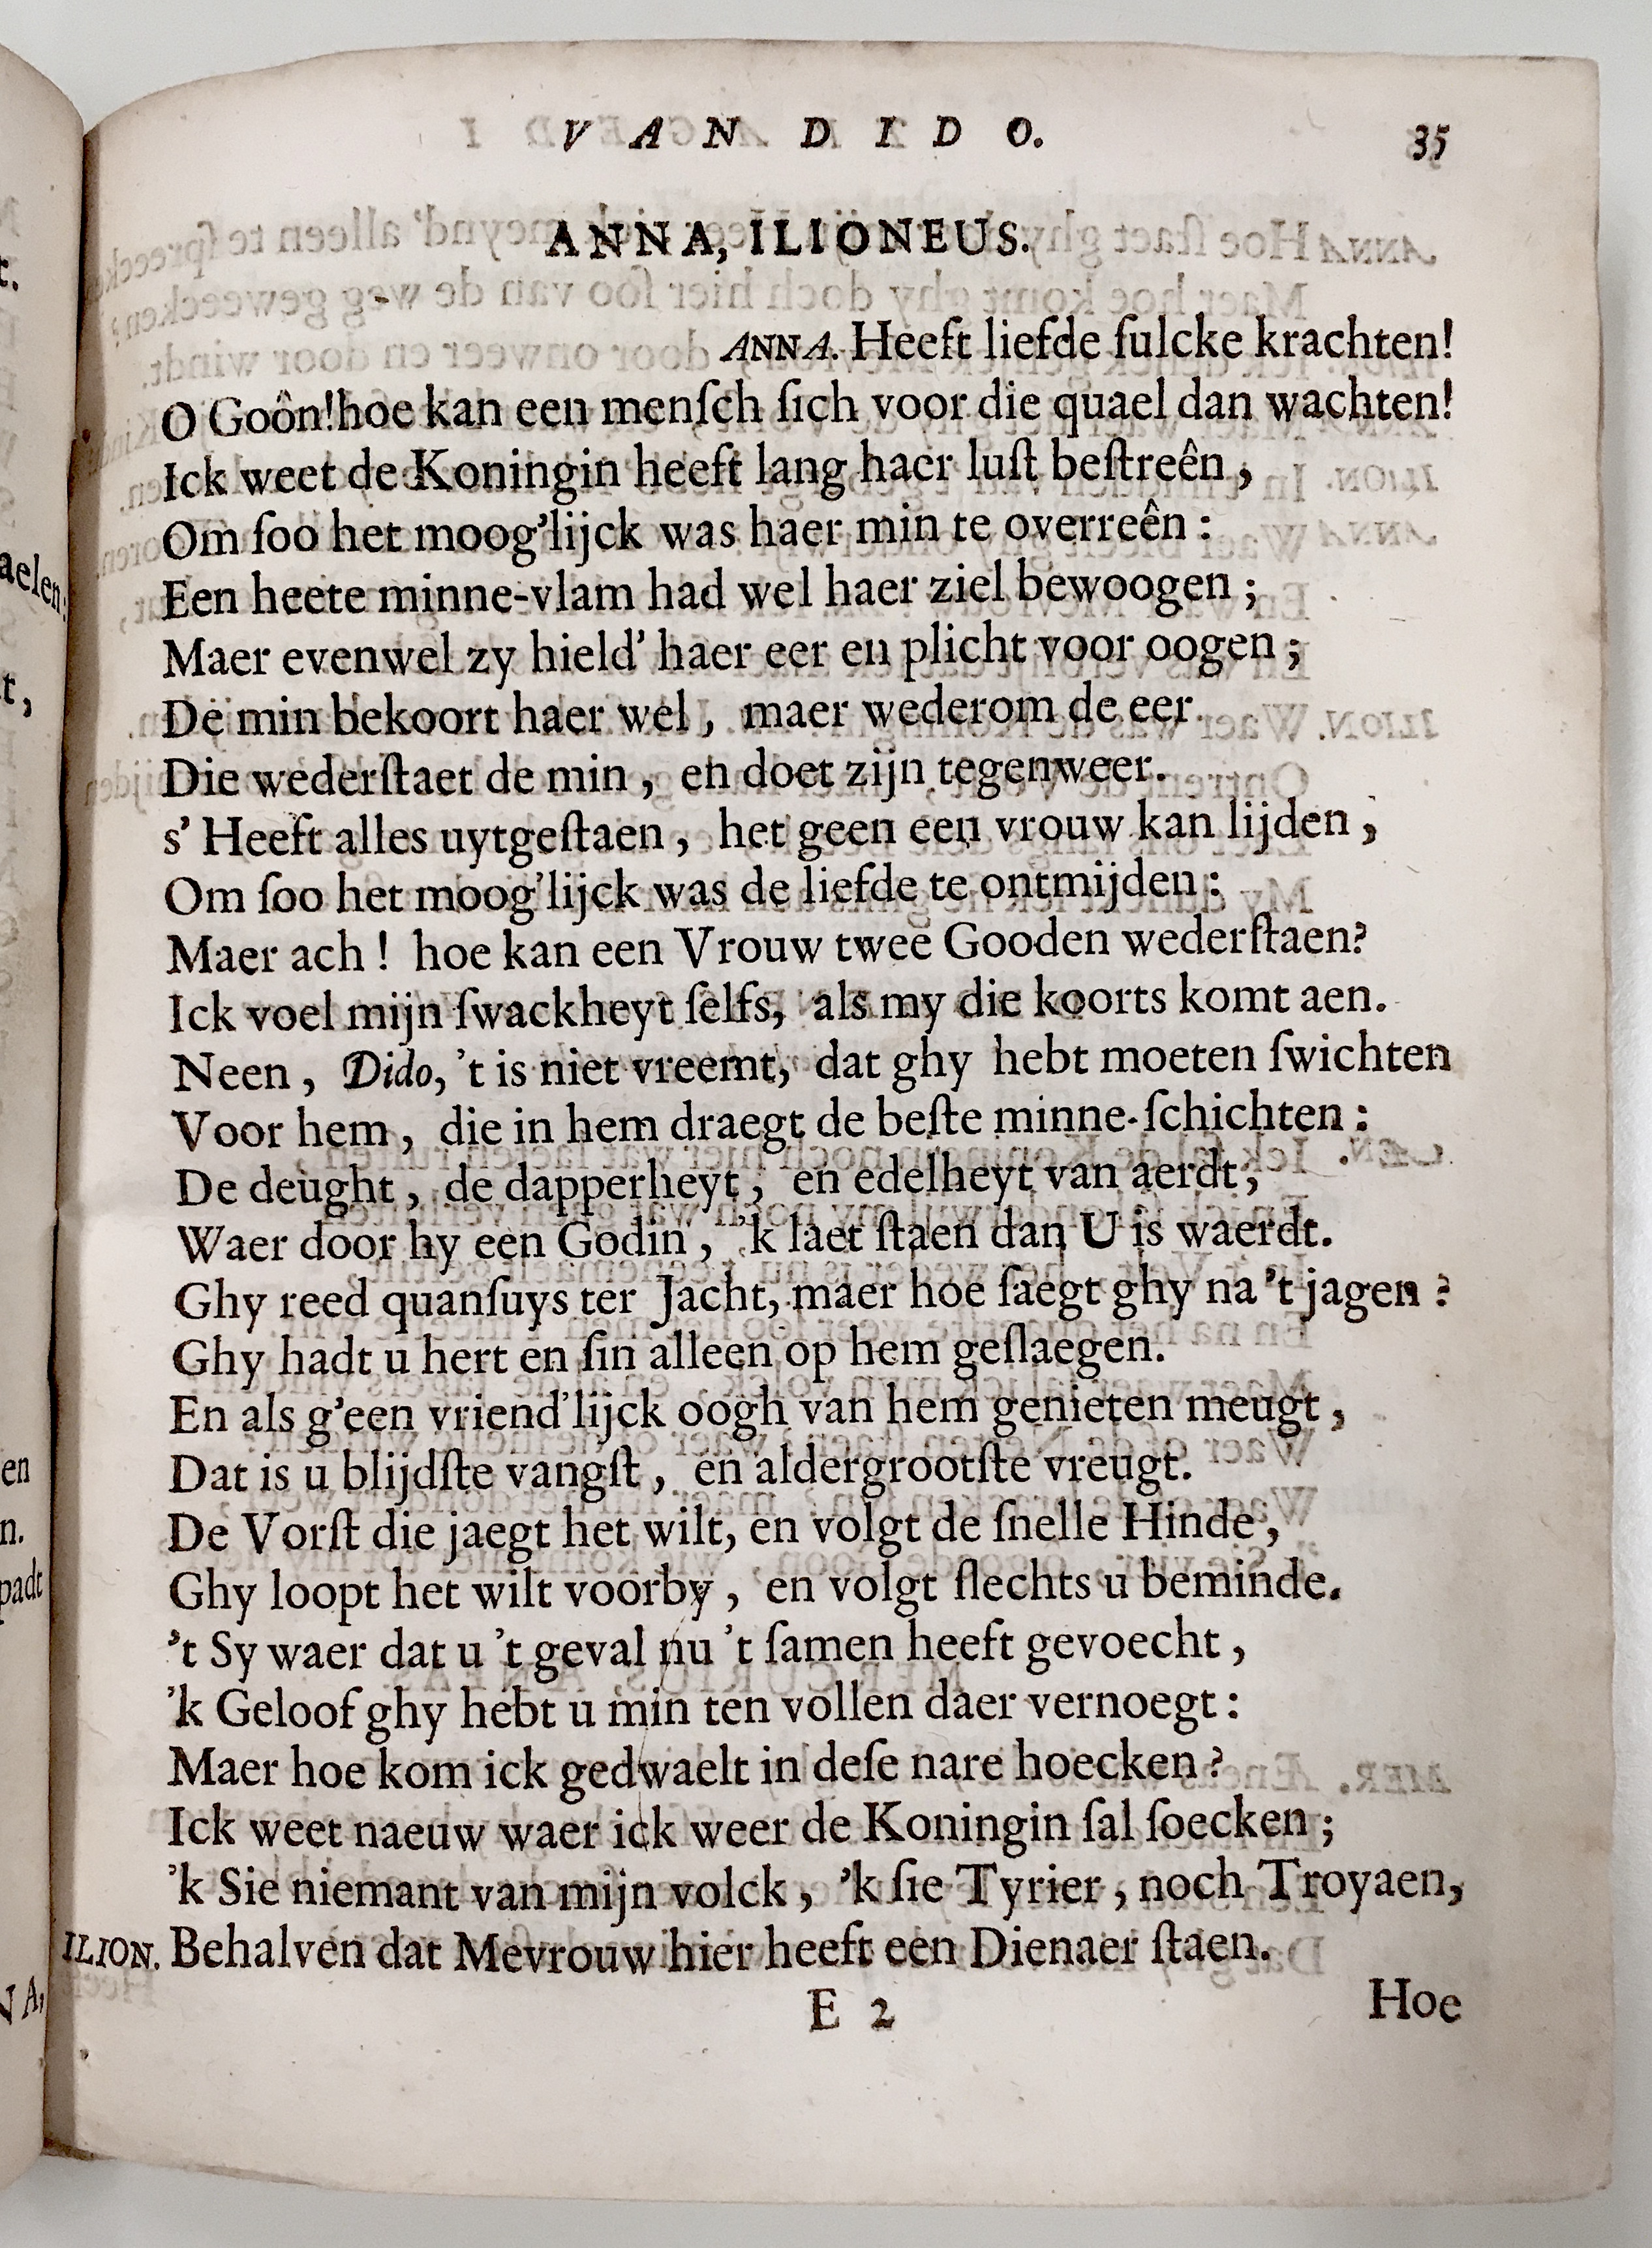 VAN DIDO. 35
ANNA, ILIONEUS.
ANNA. Heeft liefde ſulcke krachten!
O Goôn!hoe kan een menſch ſich voor die quael dan wachten!
Ick weet de Koningin heeft lang haer luſt beſtreên,
Om ſoo het moog'lijck was haer min te overreên:
Een heete minne-vlam had wel haer ziel bewoogen;
Maer evenwel zy hield' haer eer en plicht voor oogen;
De min bekoort haer wel, maer wederom de eer
Die wederſtaet de min, en doet zijn tegenweer.
s' Heeft alles uytgeſtaen, het geen een vrouw kan lijden,
Om ſoo het moog'lijck was de liefde te ontmijden:
Maer ach! hoe kan een Vrouw twee Gooden wederſtaen?
Ick voel mijn ſwackheyt ſelfs, als my die koorts komt aen.
Neen, Dido, 't is niet vreemt, dat ghy hebt moeten ſwichten
Voor hem, die in hem draegt de beſte minne-ſchichten:
De deught, de dapperheyt, en edelheyt van aerdt,
Waer door hy een Godin, 'k laet ſtaen dan U is waerdt.
Ghy reed quanſuys ter Jacht, maer hoe ſaegt ghy na 't jagen?
Ghy hadt u hert en ſin alleen op hem geſlaegen.
En als g'een vriend'lijck oogh van hem genieten meugt,
Dat is u blijdſte vangſt, en aldergrootſte vreugt.
De Vorſt die jaegt het wilt, en volgt de ſnelle Hinde,
Ghy loopt het wilt voorby, en volgt ſlechts u beminde.
't Sy waer dat u 't geval nu 't ſamen heeft gevoecht,
'k Geloof ghy hebt u min ten vollen daer vernoegt:
Maer hoe kom ick gedwaelt in deſe nare hoecken?
Ick weet naeuw waer ick weer de Koningin ſal ſoecken;
'k Sie niemant van mijn volck, 'k ſie Tyrier, noch Troyaen,
ILION. Behalven dat Mevrouw hier heeft een Dienaer ſtaen.
E 2 Hoe